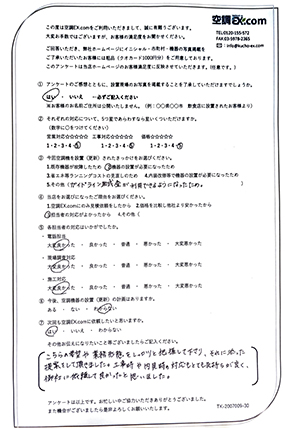 空調EX.com
TEL:0120-155-572
FAX:03-5978-2365
この度は空調EX.comをご利用いただきまして、誠に有難うございます。
大変お手数ではございますが、お客様の満足度をお聞かせください。
ご回答いただき、弊社ホームページにイニシャル・市町村・機器の写真掲載を
ご了承いただいたお客様には粗品(クオカード1000円分)をご用意しております。
このアンケートは当店ホームページのお客様満足度に反映させていただきます。(任意です。)
① アンケートのご感想とともに、設置現場のお写真を掲載することを了承していただけますでしょうか。
はい ・ いいえ
② それぞれの対応について、5つ星であらわすならいくつついただけますか。
(数字に○をつけてください)
営業対応☆☆☆☆☆ 工事対応☆☆☆☆☆ 価格☆☆☆☆☆
1・2・3・4・5 1・2・3・4・5 1・2・3・4・5
③ 今回空調機を設置(更新)されたきっかけをお選びください。
1.既存機器が故障したため 2.機器の設置が必要になったため
3.省エネ等ランニングコストの見直しのため 4.内装改修等で機器の設置が必要になったため
5.その他
④ 当店をお選びになったご理由をお選びください。
1.空調EX.comにのみ見積依頼をしたから 2.価格を比較し他社より安かったから
3.担当者の対応がよかったから 4.その他(
⑤ 各担当者の対応はいかがでしたか。
・ 電話担当
大変良かった ・ 良かった ・ 普通 ・ 悪かった ・ 大変悪かった
・ 現場調査対応
大変良かった ・ 良かった ・ 普通 ・ 悪かった ・ 大変悪かった
・ 施工対応
大変良かった ・ 良かった ・ 普通 ・ 悪かった ・ 大変悪かった
⑥ 今後、空調機器の設置(更新)の計画はありますか。
ある ・ ない ・ わからない
⑦ 次回も空調EX.comに依頼したいと思いますか。
はい ・ いいえ ・ わからない
その他お伝えになりたいこと等ございましたらご記入ください。
こちらの希望や業務形態をしっかりと把握して下さり、それに添った
提案をして頂きました。工事時や内見時の対応もとても気持ちが良く、
御社に依頼して良かったと思いました。
アンケートは以上です。お忙しい中ご協力いただきありがとうございました。
また機会がございましたら是非よろしくお願いいたします。